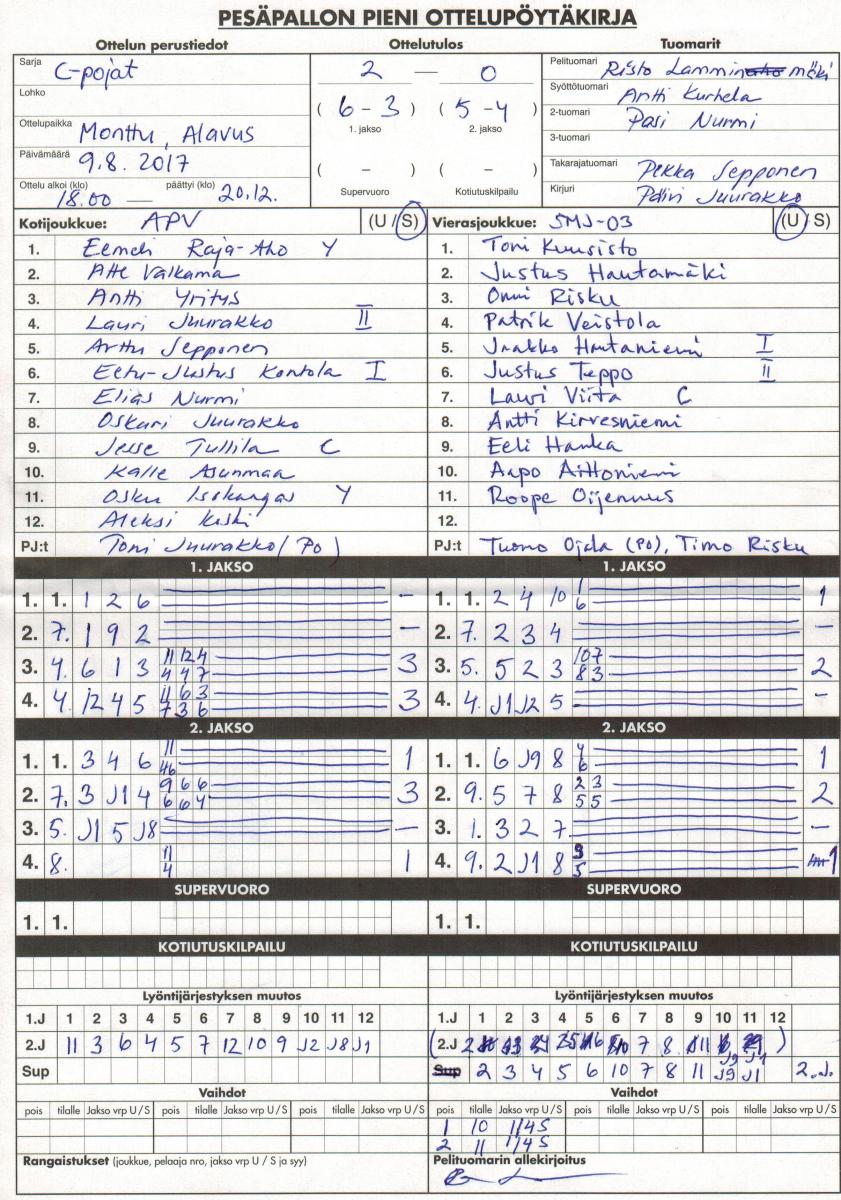 PESÄPALLON PIENI OTTELUPÖYTÄKIRJA
Ottelun perustiedot Ottelutulos Tuomarit
Sarja C-pojat
Lohko
Ottelupaikka Monttu, Alavus
Päivämäärä 9.8. 2017
Ottelu alkoi (klo) 18.00 — päättyi (klo) 20.12.
2 — 0
( 6 – 3 ) ( 5 – 4 )
1. jakso 2. jakso
( – ) ( – )
Supervuoro Kotiutuskilpailu
Pelituomari Risto Lamminmäki
Syöttötuomari Antti Kurhela
2-tuomari Pasi Nurmi
3-tuomari
Takarajatuomari Pekka Sepponen
Kirjuri Päivi Juurakko
Kotijoukkue: APV (U / S)
1. Eemeli Raja-Aho Y
2. Atte Valkama
3. Antti Yritys
4. Lauri Juurakko II
5. Arttu Sepponen
6. Eetu-Justus Kontola I
7. Elias Nurmi
8. Oskari Juurakko
9. Jesse Tullila C
10. Kalle Asunmaa
11. Osku Isokangas Y
12. Aleksi Kiski
PJ:t Toni Juurakko (Po)
Vierasjoukkue: SMJ-03 (U / S)
1. Toni Kuusisto
2. Justus Hautamäki
3. Onni Risku
4. Patrik Veistola
5. Jaakko Hautaniemi I
6. Justus Teppo II
7. Lauri Viita C
8. Antti Kirvesniemi
9. Eeli Hanka
10. Aapo Aittoniemi
11. Roope Oijennus
12.
PJ:t Tuomo Ojala (Po), Timo Risku
1. JAKSO
1. 1. 1 2 6 –
2. 7. 1 9 2 –
3. 4. 6 1 3 11 12 4 3
4 4 7
4. 4. 12 4 5 11 6 3 3
7 3 6
1. JAKSO
1. 1. 2 4 10 1 1
6
2. 7. 2 3 4 –
3. 5. 5 2 3 10 7 2
8 3
4. 4. J1 J2 5 –
2. JAKSO
1. 1. 3 4 6 11 1
46
2. 7. 3 J1 4 9 6 6 3
6 6 4
3. 5. J1 5 J8 –
4. 8. 11 1
4
2. JAKSO
1. 1. 6 J9 8 4 1
6
2. 9. 5 7 8 2 3 2
5 5
3. 1. 3 2 7 –
4. 9. 2 J1 8 3 1
5
SUPERVUORO SUPERVUORO
1. 1. 1. 1.
KOTIUTUSKILPAILU KOTIUTUSKILPAILU
Lyöntijärjestyksen muutos
1.J 1 2 3 4 5 6 7 8 9 10 11 12
2.J 11 3 6 4 5 7 12 10 9 J2 J8 J1
Sup
Lyöntijärjestyksen muutos
1.J 1 2 3 4 5 6 7 8 9 10 11 12
(2.J 7 8 11 )
J9 J1
Sup 2 3 4 5 6 10 7 8 11 J9 J1 2.J.
Vaihdot
pois tilalle Jakso vrp U / S pois tilalle Jakso vrp U / S pois tilalle Jakso vrp U / S
Vaihdot
pois tilalle Jakso vrp U / S pois tilalle Jakso vrp U / S pois tilalle Jakso vrp U / S
1 10 1/4 S
2 11 1/4 S
Rangaistukset (joukkue, pelaaja nro, jakso vrp U / S ja syy)
Pelituomarin allekirjoitus